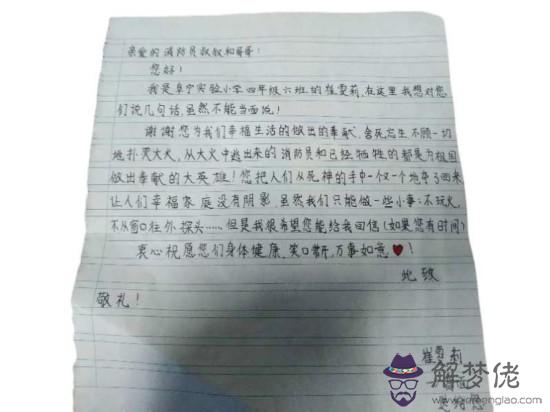 亲爱的消防员叔叔和哥哥:
您好!
我是阜宁实验小学四年级六班的崔雯莉,在这里我想对您
们说几句话,虽然不能当面说!
谢谢您为我们幸福生活的做出的奉献,舍死忘生不顾一切
地扑灭大火,从大火中逃出来的消防员和已经牺牲的都是为祖国
做出奉献的大英雄!您把人们从死神的手中一个又一个地夺了回来
让人们幸福家庭没有阴影,虽然我们只能做一些小事:不玩火,
不从窗口往外探头……但是我很希望您能给我回信(如果您有时间)
衷心祝愿您们身体健康,笑口常开,万事如意♥!
此致
敬礼!
崔雯莉
解梦佬